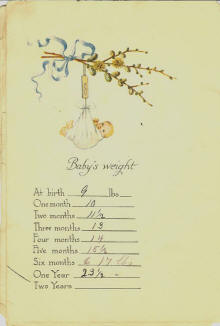 Baby's weight
At birth 9 lbs.
One month 10
Two months 11½
Three months 13
Four months 14
Five months 15½
Six months 17 lbs
One Year 23½
Two Years